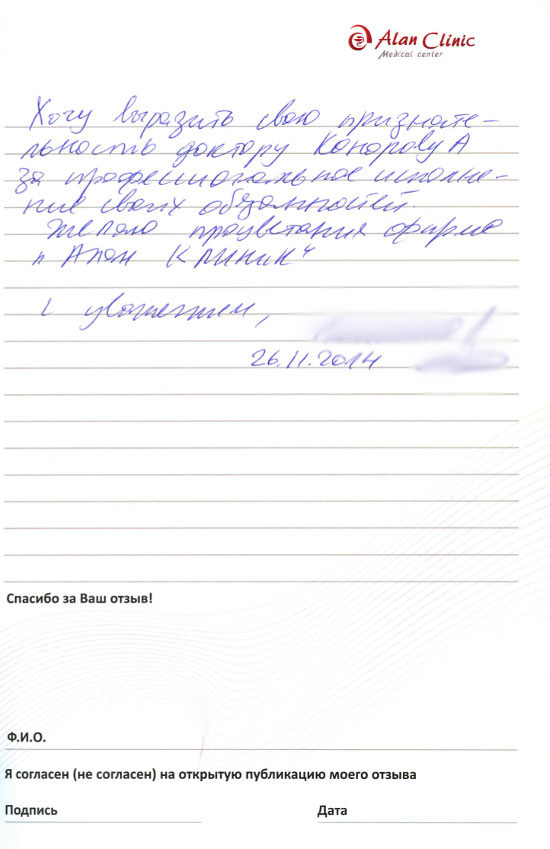 Alan Clinic
Medical center
Хочу выразить свою признате-
льность доктору Конорову А
за профессиональное исполне-
ние своих обязанностей.
Желаю процветания фирме
„Алан Клиник“
С уважением,
26.11.2014
Спасибо за Ваш отзыв!
Ф.И.О.
Я согласен (не согласен) на открытую публикацию моего отзыва
Подпись Дата